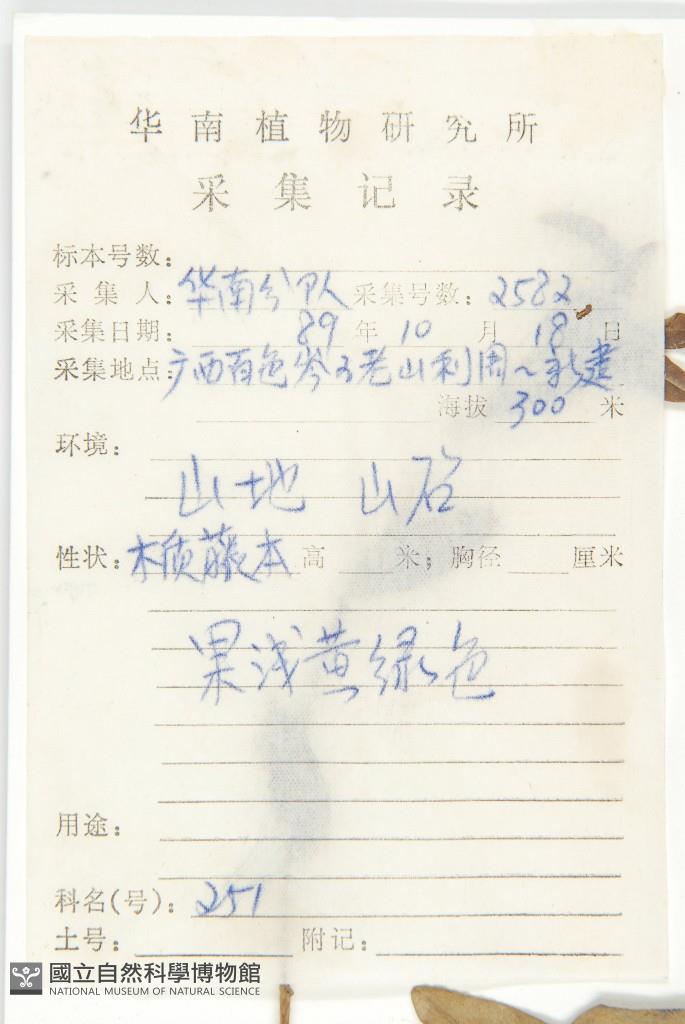 华南植物研究所
采集记录
标本号数:
采集人: 华南分队 采集号数: 2582
采集日期: 89年10月18日
采集地点: 广西百色岑王老山利周~新建
海拔 300 米
环境:
山地 山谷
性状: 木质藤本 高 米; 胸径 厘米
果浅黄绿色
用途:
科名(号): 251
土号: 附记:
國立自然科學博物館
NATIONAL MUSEUM OF NATURAL SCIENCE